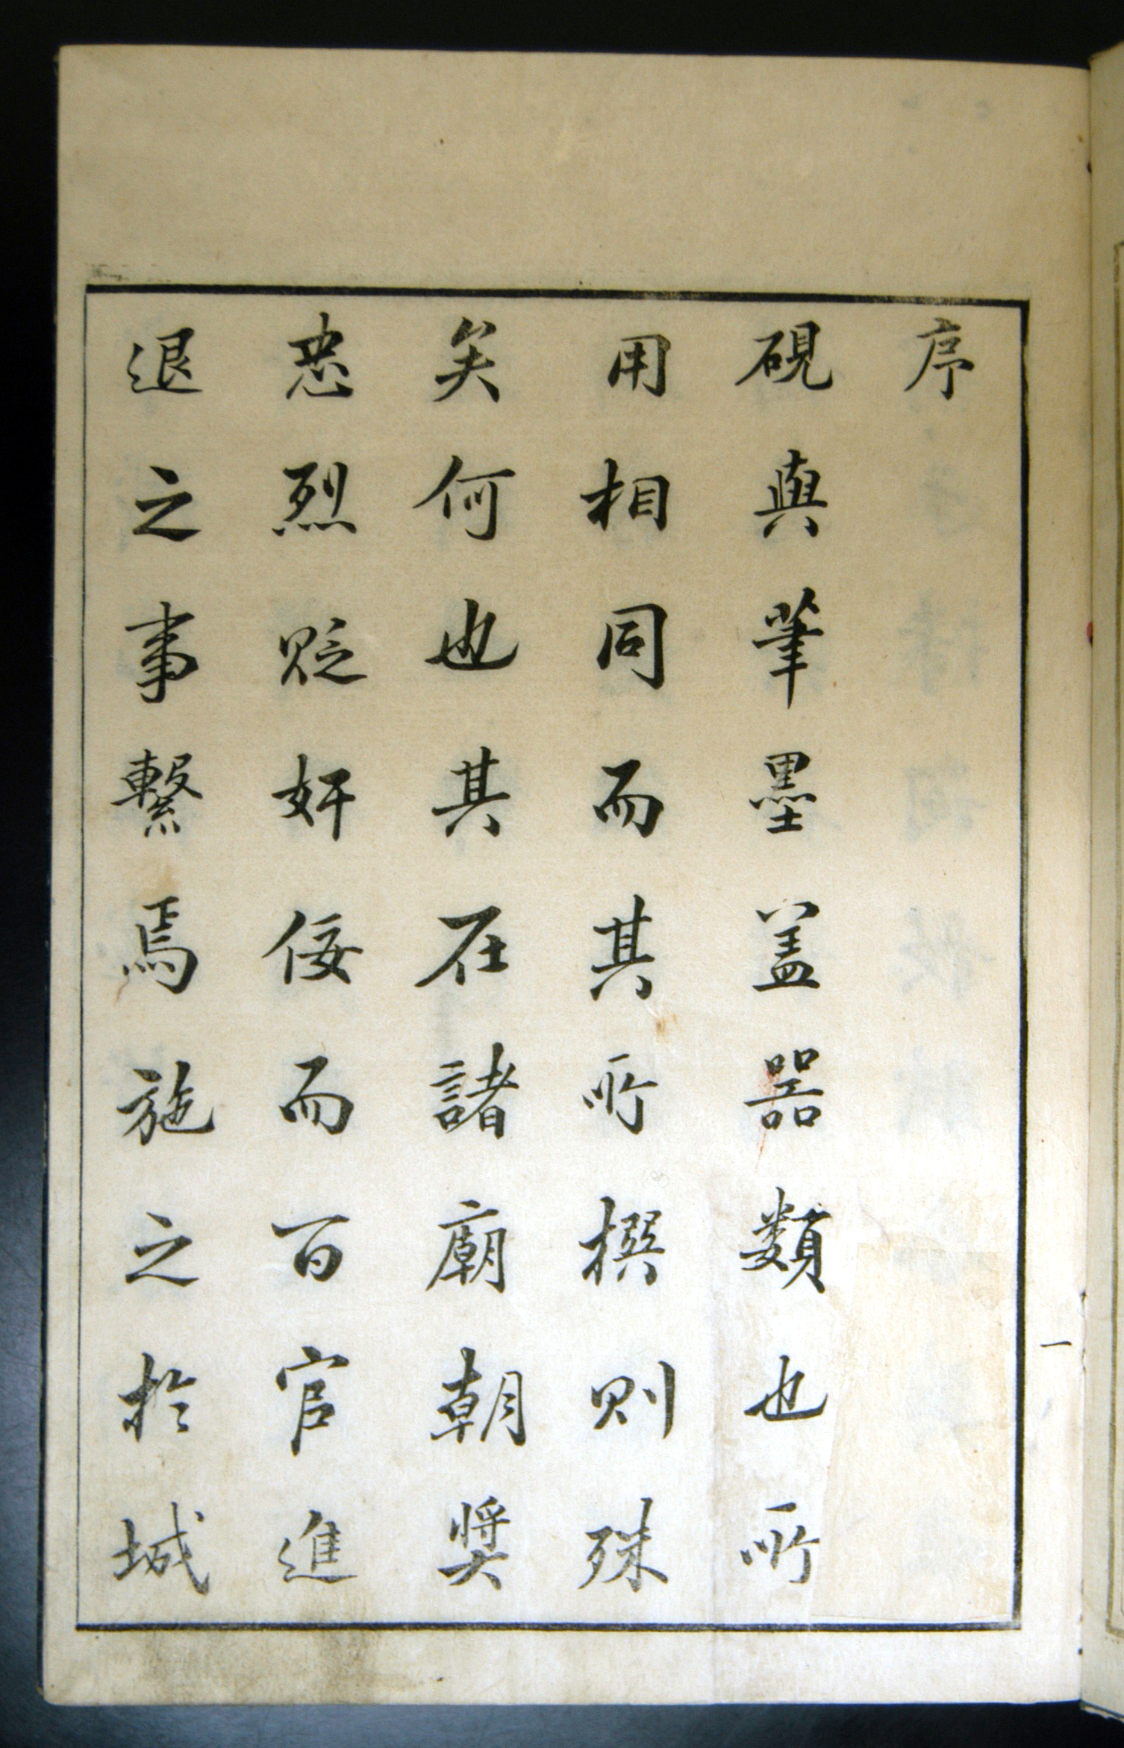 序
硯與筆墨盖器類也所
用相同而其所撰則殊
矣何也其在諸廟朝奨
忠烈貶奸佞而百官進
退之事繋焉施之於城
一